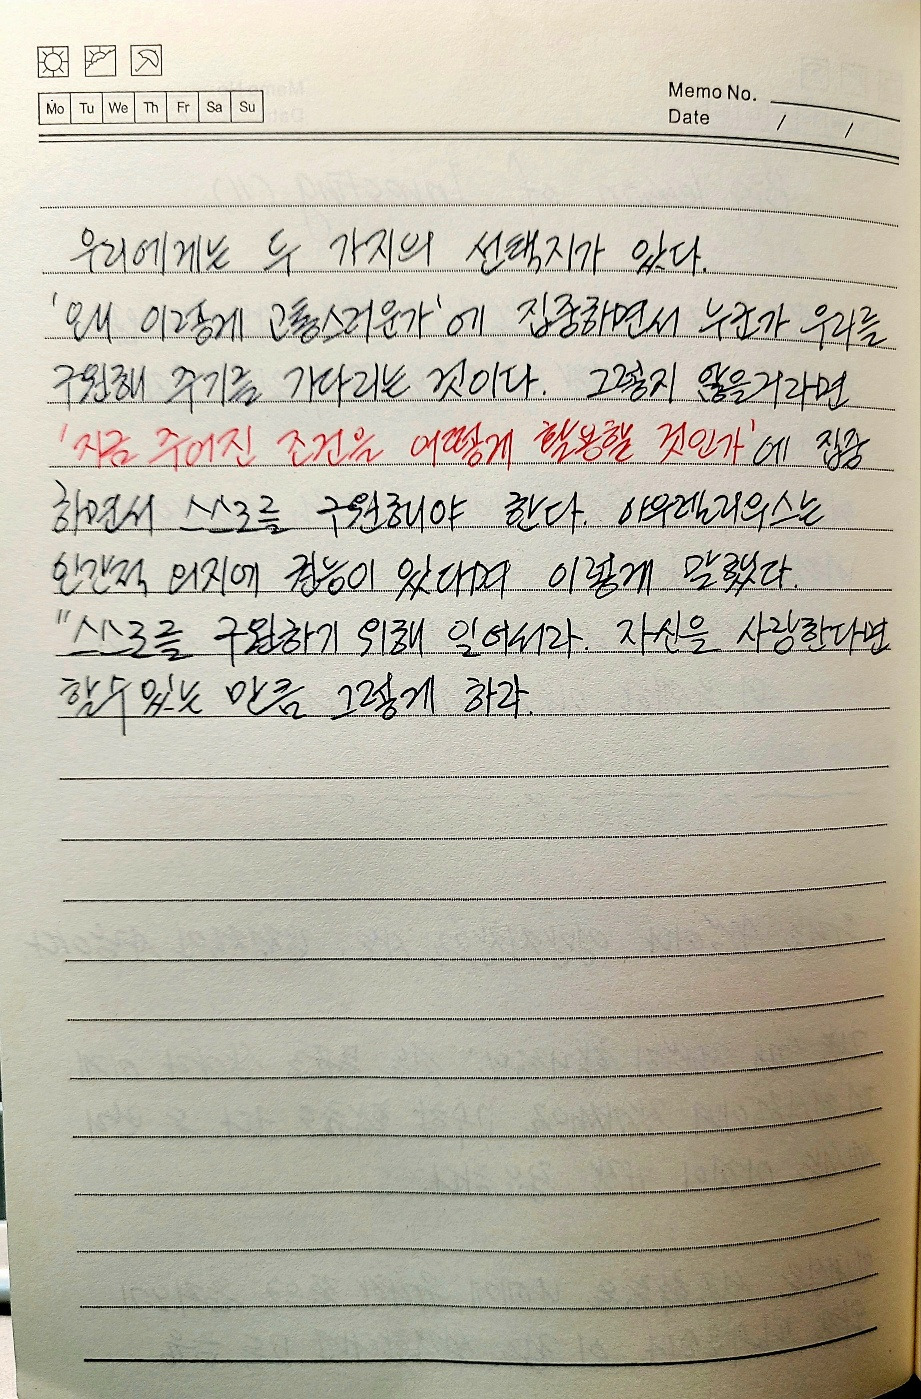 Mo Tu We Th Fr Sa Su
Memo No.
Date / /
우리에게는 두 가지의 선택지가 있다.
'왜 이렇게 고통스러운가'에 집중하면서 누군가 우리를
구원해 주기를 기다리는 것이다. 그렇지 않을거라면
'지금 주어진 조건을 어떻게 활용할 것인가'에 집중
하면서 스스로를 구원해야 한다. 아우렐리우스는
인간적 의지에 권능이 있다며 이렇게 말했다.
"스스로를 구원하기 위해 일어서라. 자신을 사랑한다면
할수있는 만큼 그렇게 하라.